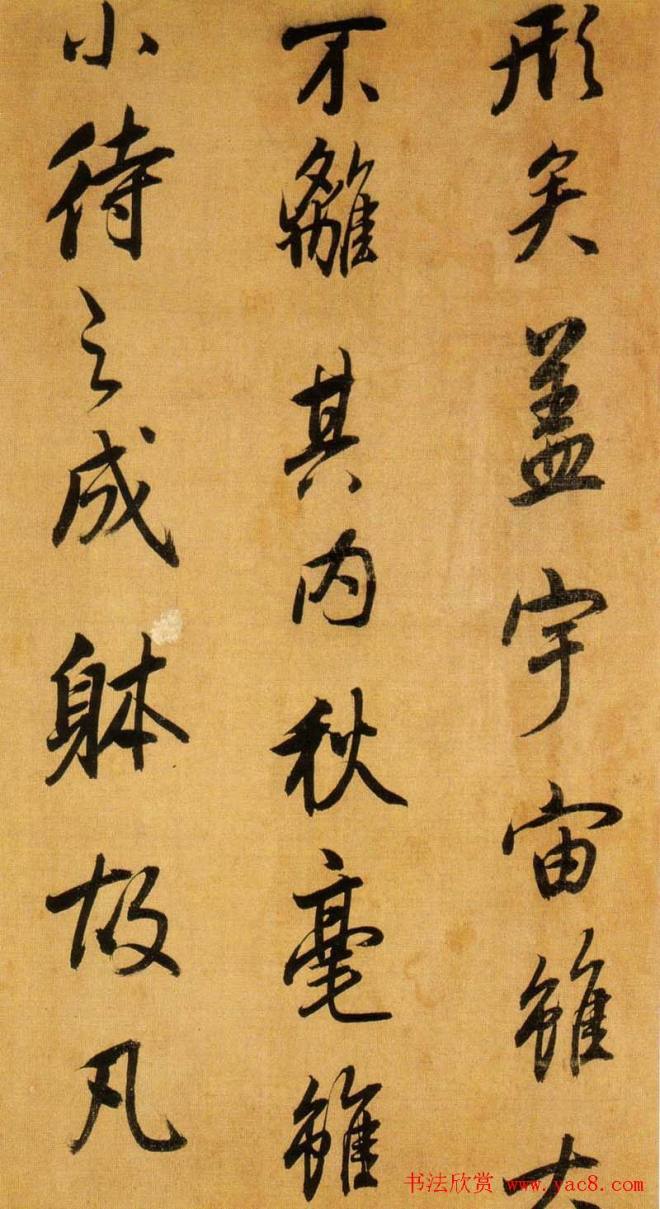 形矣蓋宇宙雖大
不離其内秋毫雖
小待之成躰故凡
书法欣赏 www.yac8.com